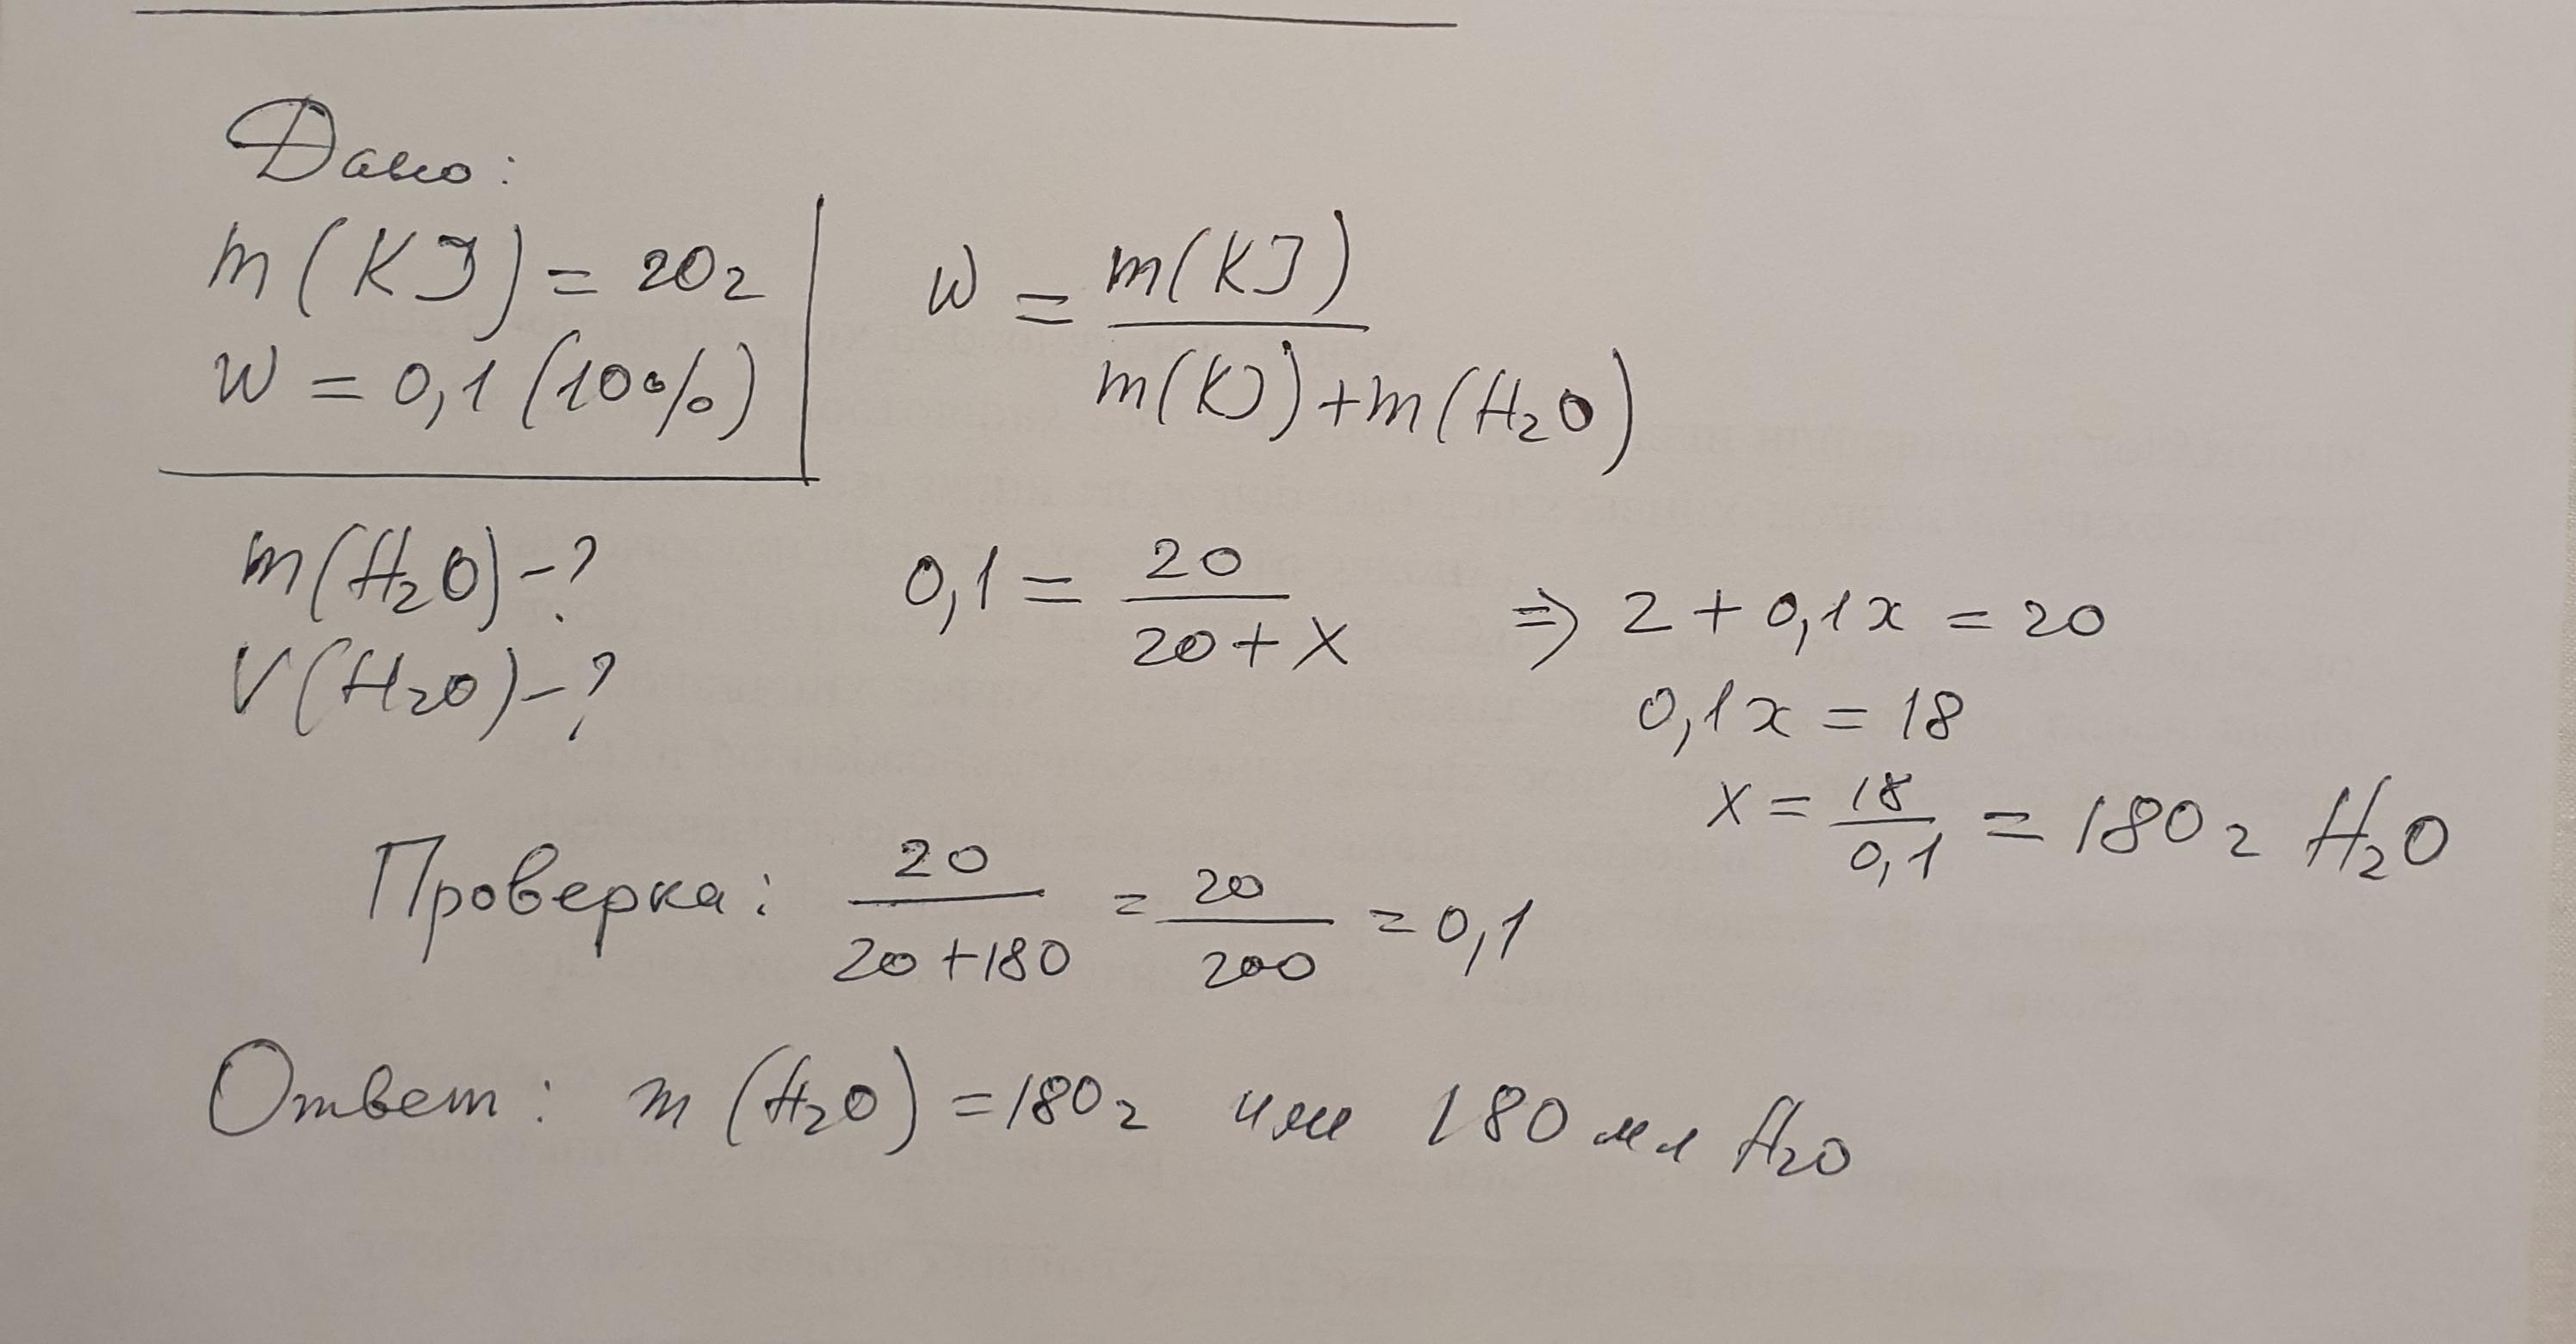 Дано:
m(KJ) = 20г
W = 0,1 (10%)
m(H₂O) - ?
V(H₂O) - ?
W = m(KJ) / m(KJ) + m(H₂O)
0,1 = 20 / 20 + x ⇒ 2 + 0,1x = 20
0,1x = 18
x = 18 / 0,1 = 180г H₂O
Проверка: 20 / 20 + 180 = 20 / 200 = 0,1
Ответ: m(H₂O) = 180г или 180 мл H₂O